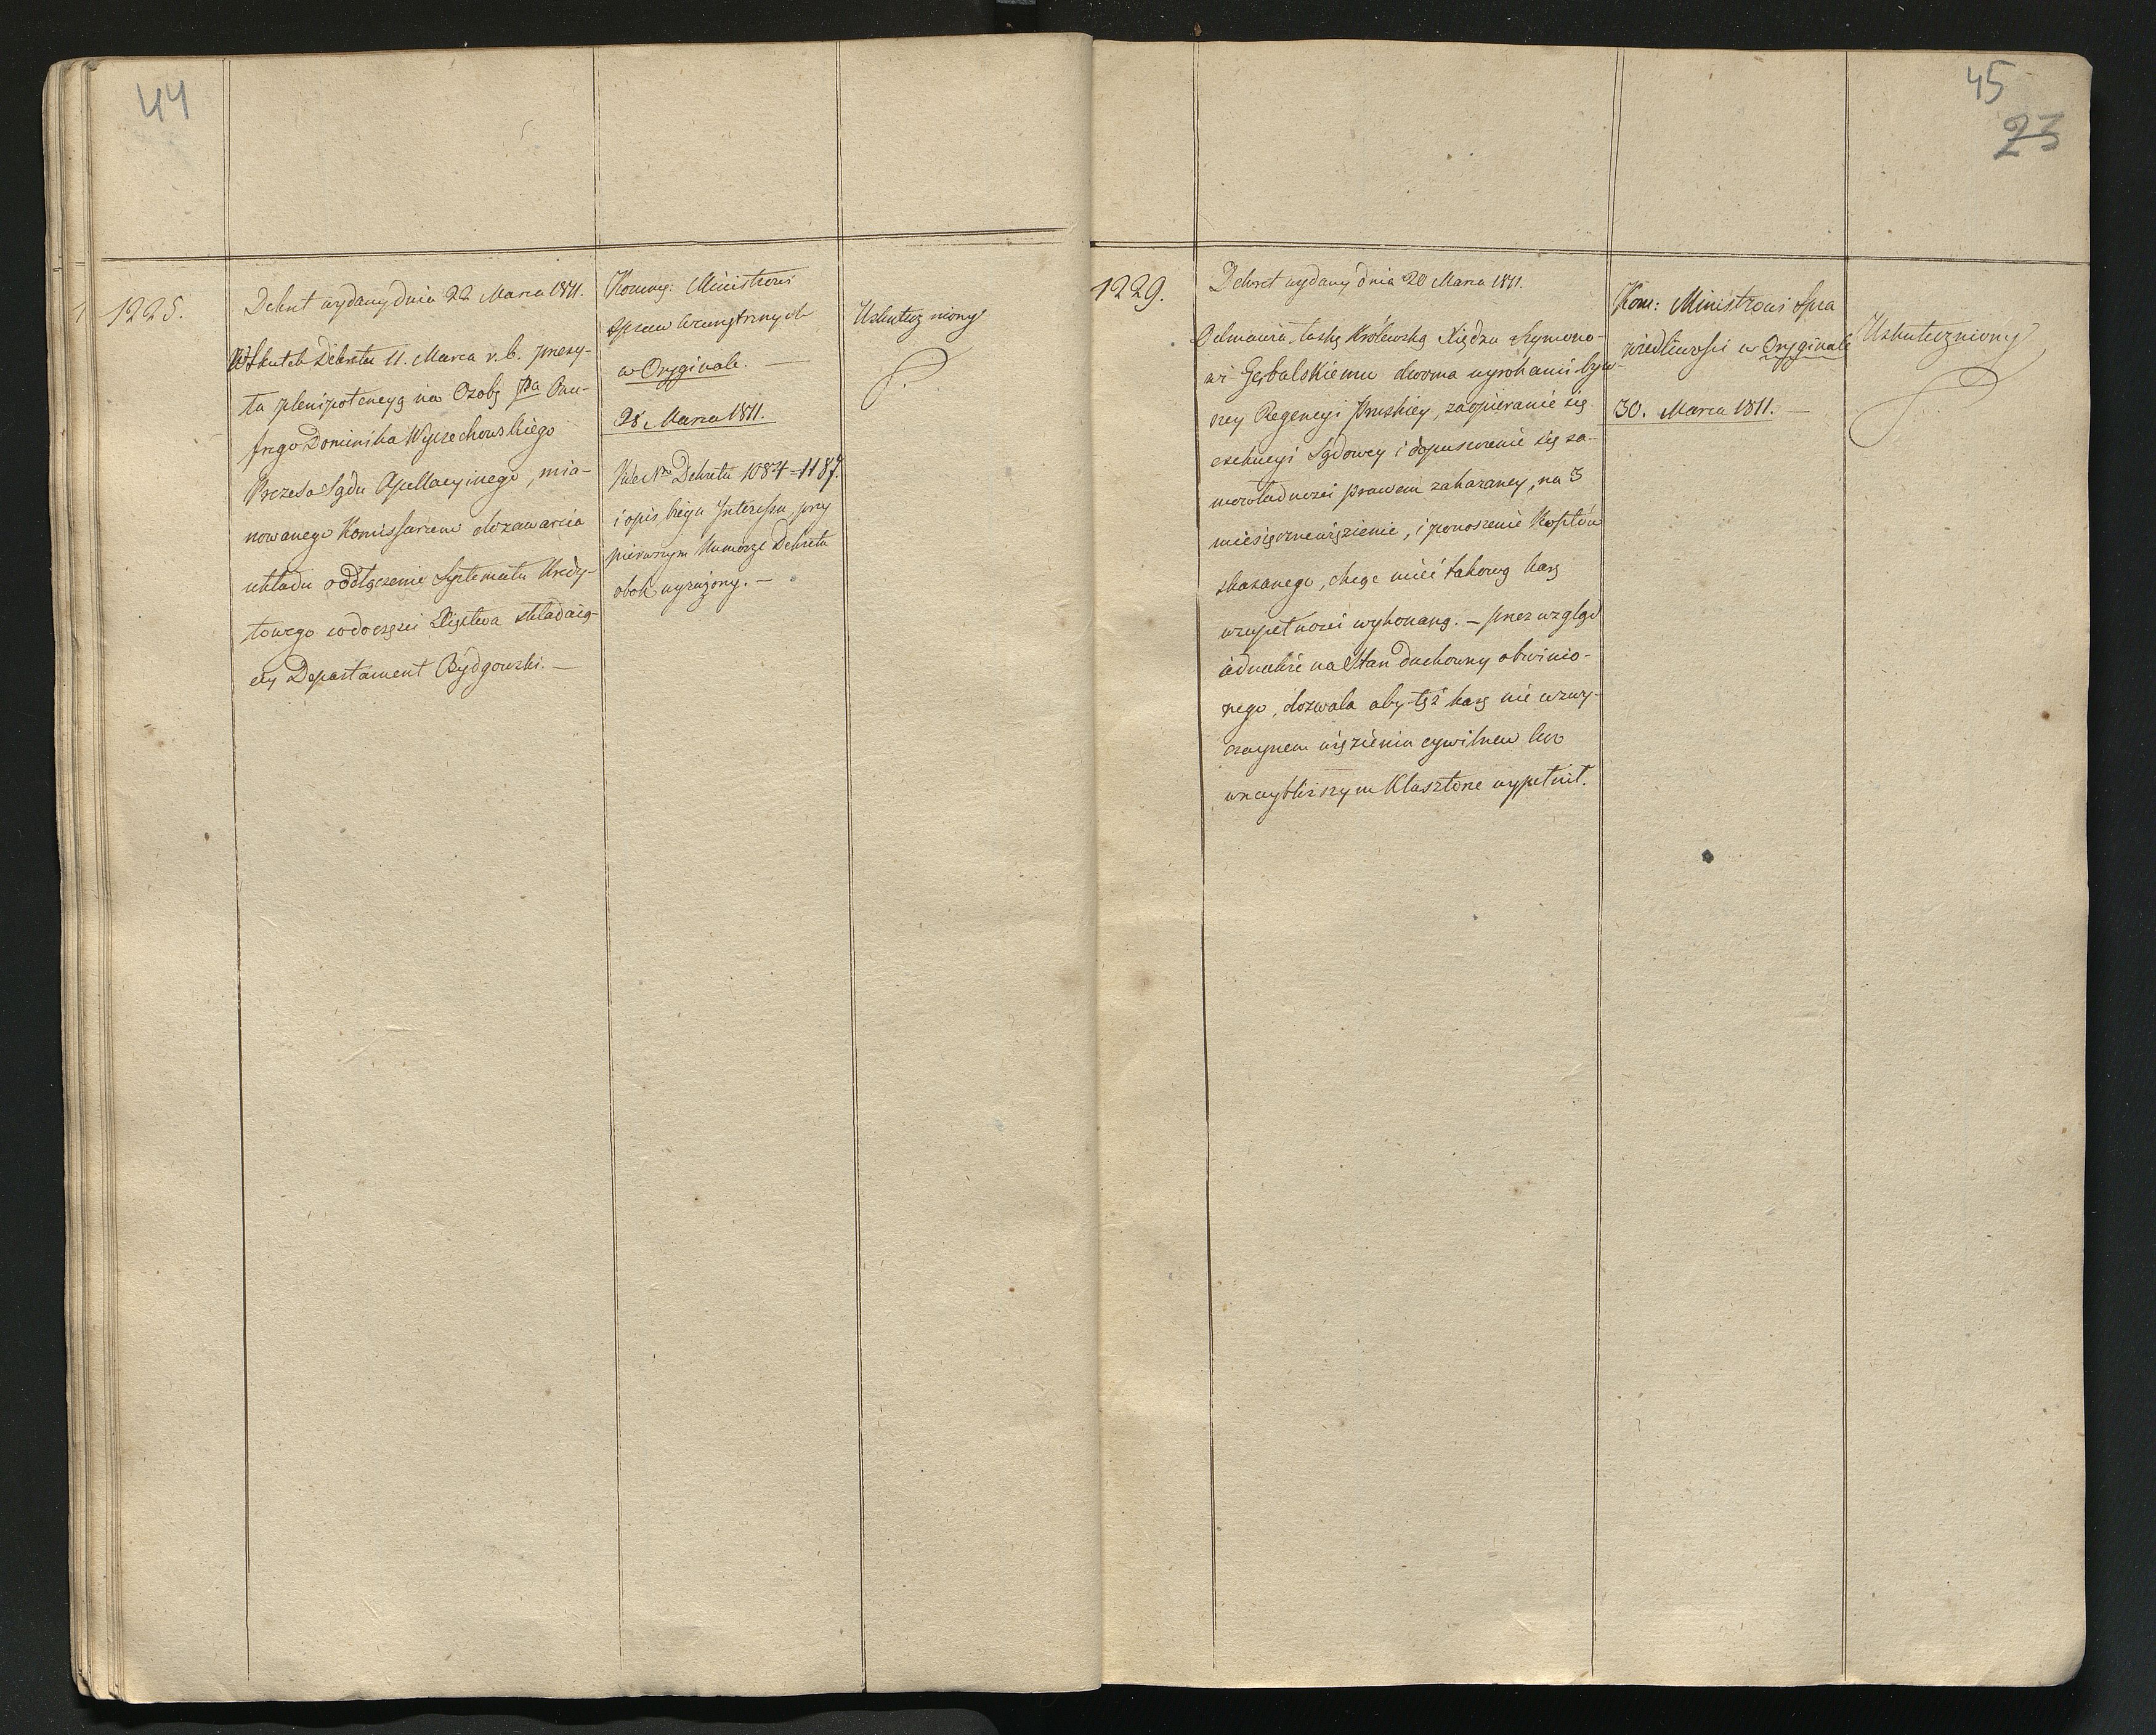 44
1225.
Dekret wydany dnia 22 Marca 1811.
W Skutek Dekretu 11. Marca r. b. przesy-
ła plenipotencyą na Osobę Pana
Dominika Wyczechowskiego
Prezesa Sądu Apellacyinego, mia-
nowanego Komissarzem do zawarcia
układu o odłączenie Systematu Kredy-
towego co do części Xięstwa składaią-
cey Departament Bydgowski. —
Kommu: Ministrowi
Spraw Wewnętrznych
w Oryginale. —
28 Marca 1811.
Vide Nra Dekretu 1084 = 1187.
i opis biegu Interessu, przy
pierwszym Numerze Dekretu
obok wyrażony. —
Uskuteczniony
45
23
1229.
Dekret wydany dnia 20 Marca 1811.
Odmawia łaskę Królewską Xiędzu Szymono-
wi Gębalskiemu dwoma wyrokami byw-
szey Regencyi Pruskiey, za opieranie się
exekucyi Sądowey i dopuszczenie się sa-
mowładności prawem zakazaney, na 3
miesięczne więzienie, i ponoszenie Kosztów
skazanego, chcąc mieć takową karę
w zupełności wykonaną. — przez wzgląd
iednakże na Stan duchowny obwinio-
nego, dozwala aby tęż karę nie w zwy-
czaynem więzieniu cywilnem lecz
w naybliższym Klasztorze wypełnił.
Kom: Ministrowi Spra
wiedliwości w Oryginale
30. Marca 1811. —
Uskuteczniony